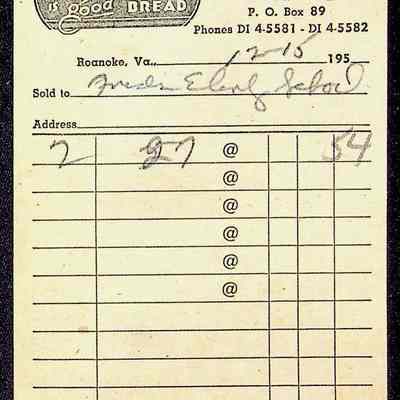 is good BREAD
P. O. Box 89
Phones DI 4-5581 - DI 4-5582
Roanoke, Va., 12-15 195
Sold to School
Address
2 27 @ 54
@
@
@
@
@